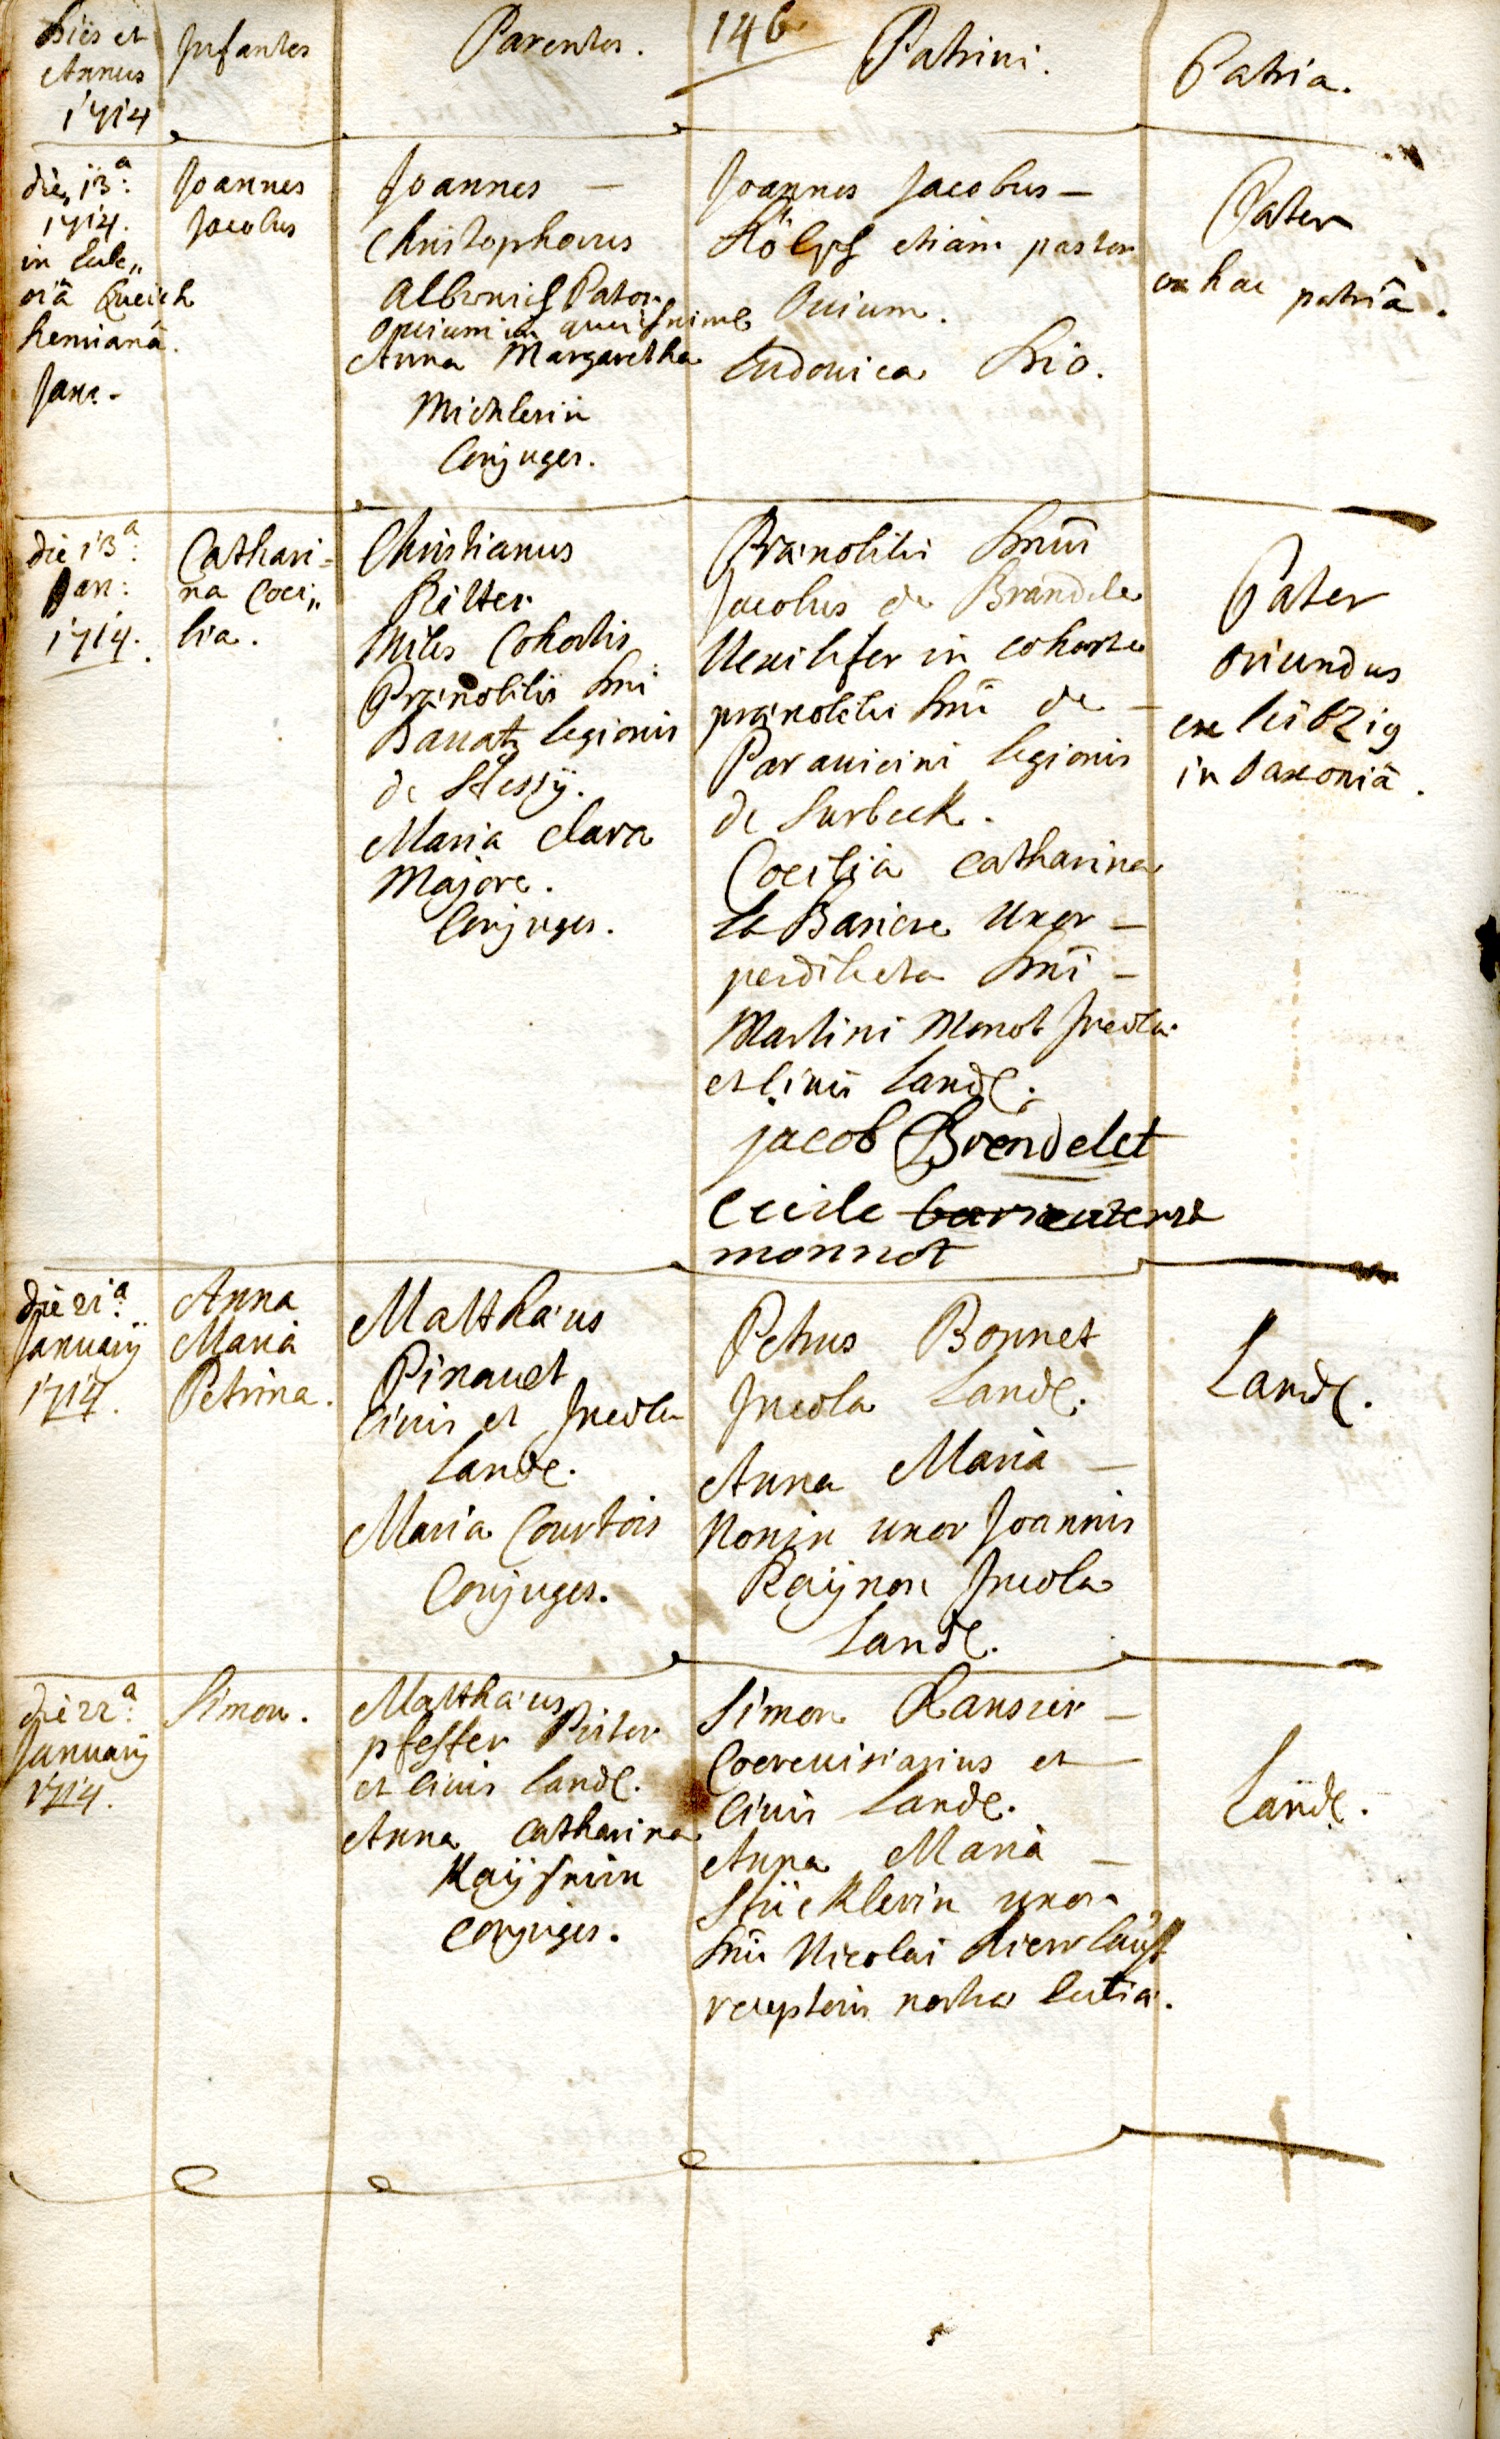 146
Dies et
Annus
1714
Infantes
Parentes.
Patrini.
Patria.
die 13a:
1714.
in Eccle„
siâ Queich
hemianâ.
Jan.
Joannes
Jacobus
Joannes –
Christophorus
Pastor
ovium in
Anna Margaretha
Micklerin
Conjuges.
Joannes Jacobus –
Kölsch etiam pastor
Ovium.
Ludovica
Pater
ex hac patriâ.
die 13a:
Jan:
1714.
Cathari=
na Coeci„
lia.
Christianus
Ritter
Miles Cohortis
Prænobilis Dni
legionis
de Hessÿ.
Maria Clara
Majore.
Conjuges.
Prænobilis Dnus
Jacobus de Brandele
Vexilifer in cohorte
prænobilis Dni de –
Paravicini legionis
de Surbeck.
Coecilia Catharina
la Bariere uxor –
perdilecta Dni –
Martini Monot Incola
et Civis Landl.
jacob Brendelet
Cecile
monnot
Pater
oriundus
ex leibzig
in Saxoniâ.
die 21a:
Januarÿ
1714.
Anna
Maria
Petrina.
Matthæus
Pinauet
Civis et Incola
Landl.
Maria Courtois
Conjuges.
Petrus Bonnet
Incola Landl.
Anna Maria –
Nonin uxor Joannis
Raÿnon Incola
Landl.
Landl.
die 22a:
Januarÿ
1714.
Simon.
Matthæus
pfeffer Pistor
et Civis Landl.
Anna Catharina
Kaÿserin
Conjuges.
Simon –
Coerevisiarius et –
Civis Landl.
Anna Maria –
Stücklerin uxor
Dni Nicolai
receptoris
Landl.